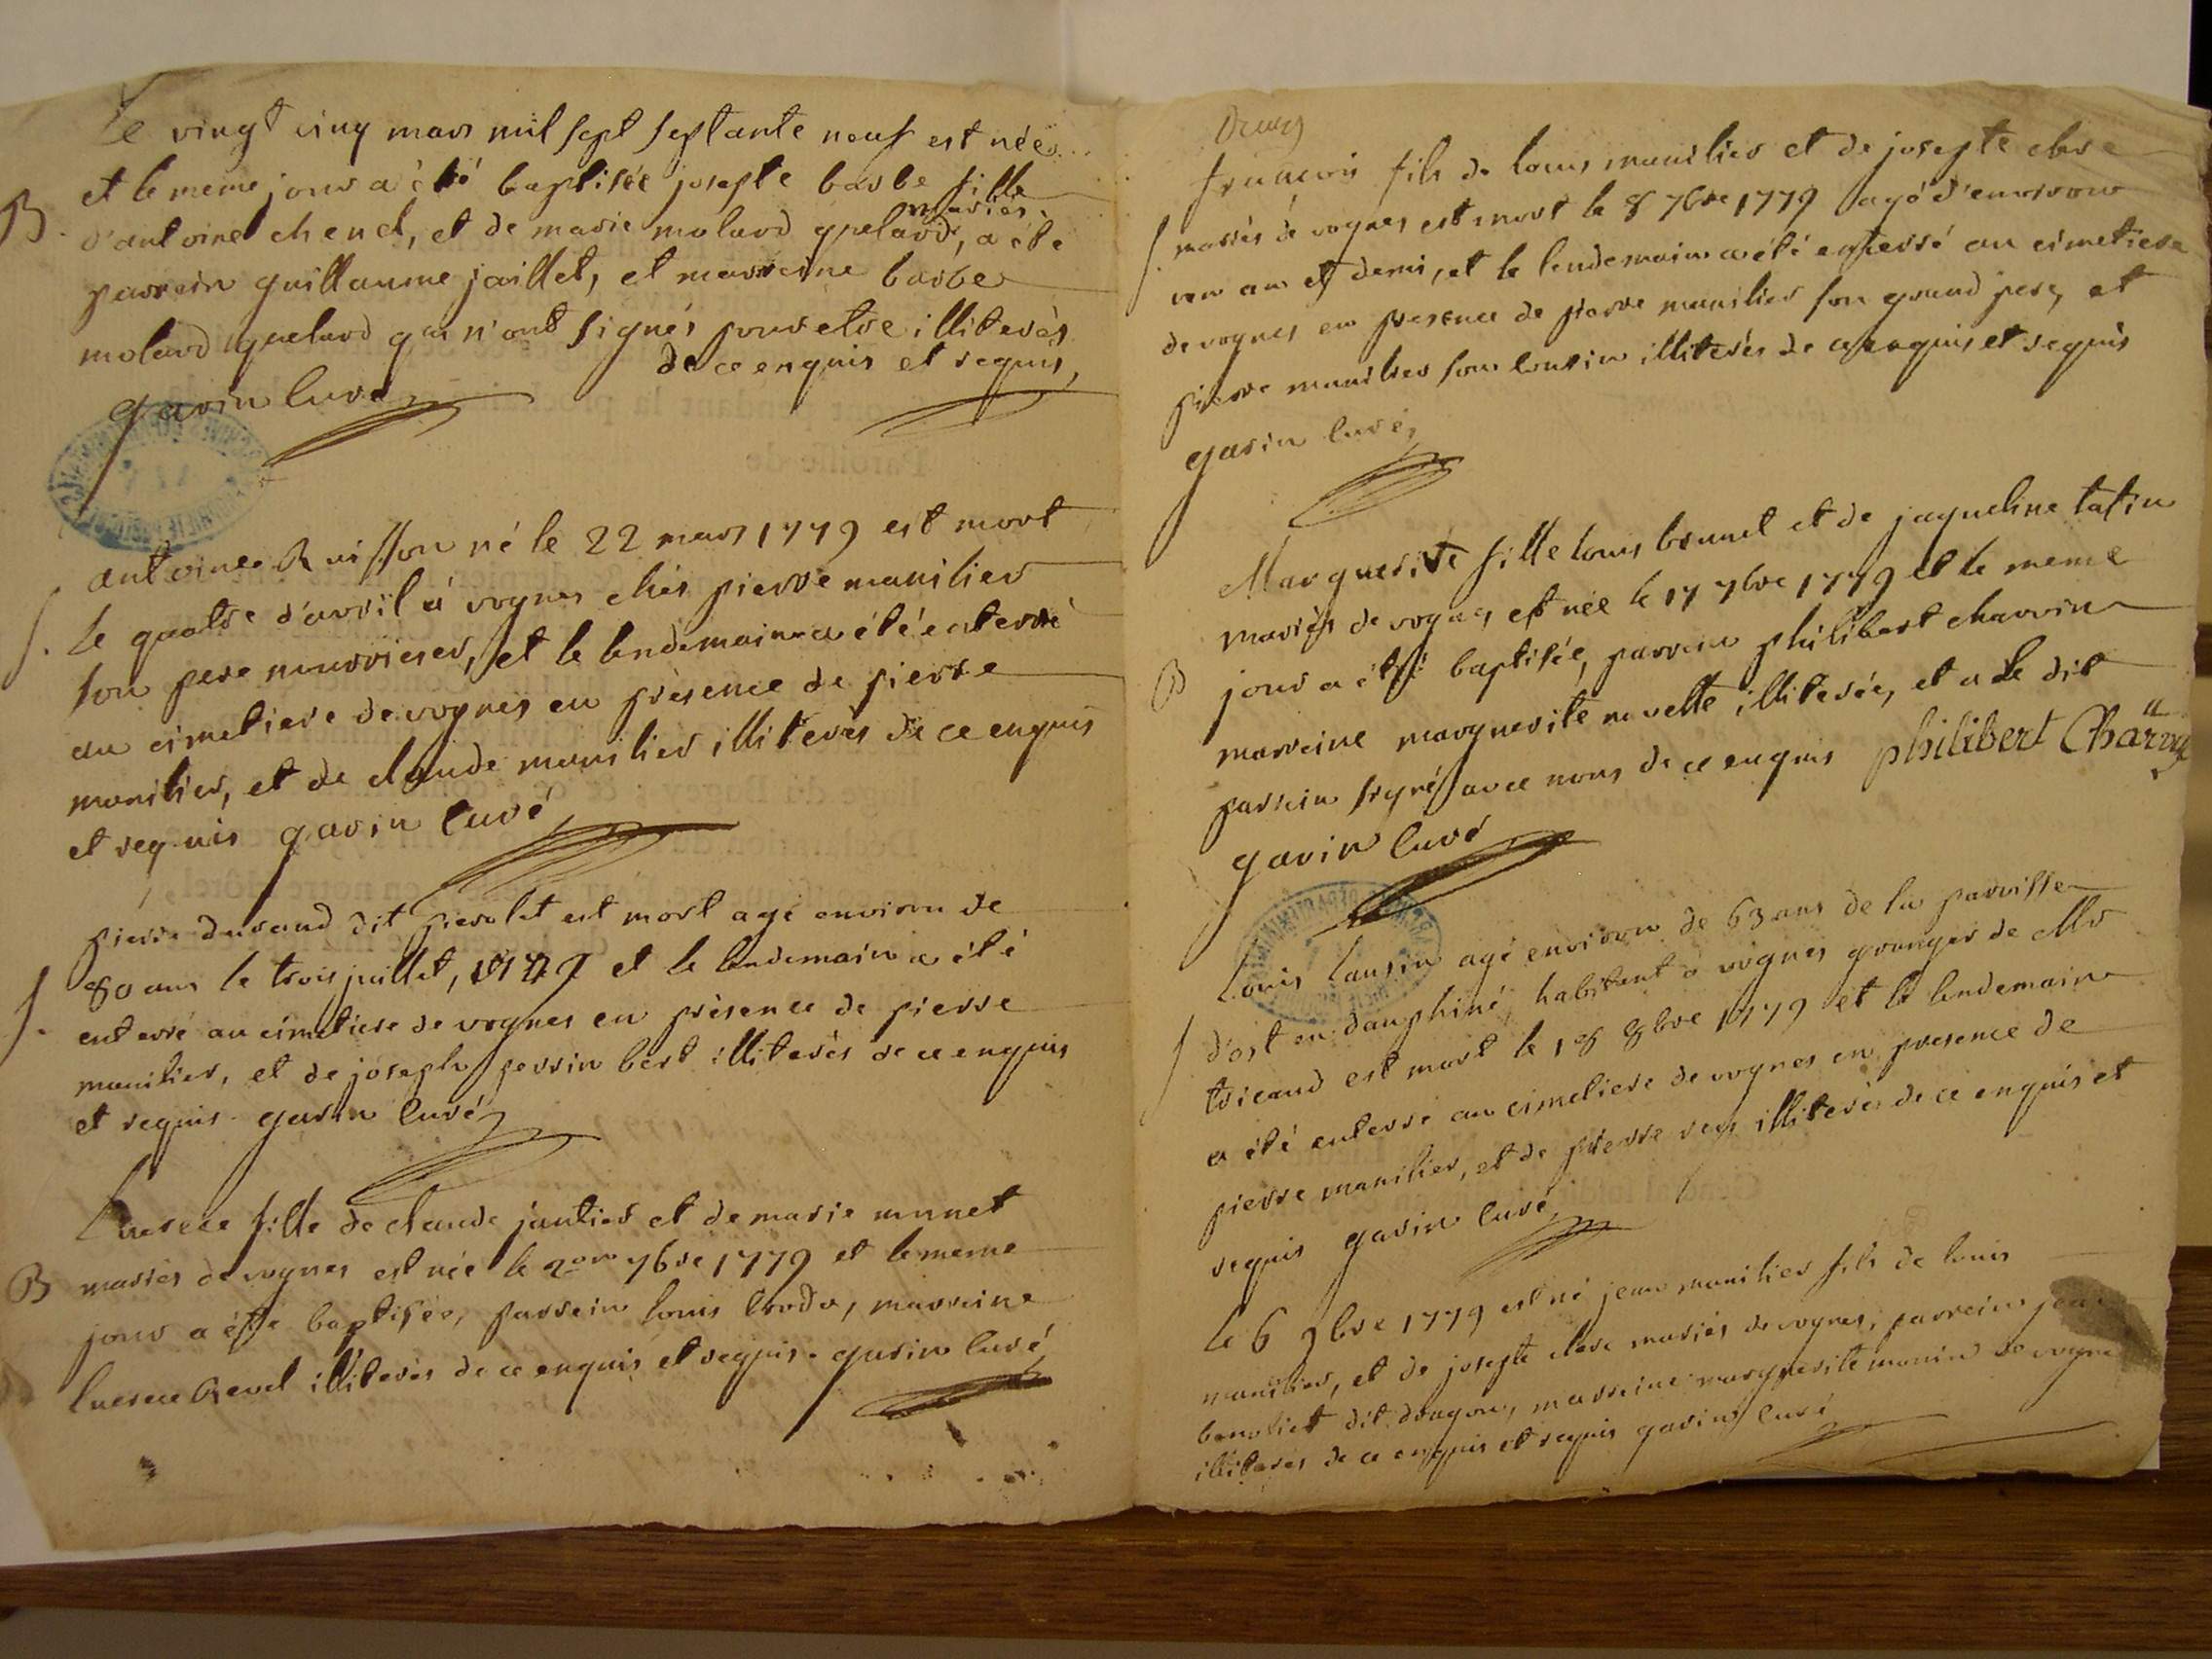 Le vingt cinq mars mil sept septante neuf est née
et le meme jour a été baptisée josepte barbe fille
B.
d'antoine chenel, et de marie molard guelard, a été
mariés
parrein guillaume jaillet, et marreine barbe
molard guelard qui n'ont signés pour etre illiterés
de ce enquis et requis,
garin curé
antoine Ruisson né le 22 mars 1779 est mort
S. le quatre d'avril à vognes chés pierre manilier
son pere nourricier, et le lendemain a été enterré
au cimetiere de vognes en présence de pierre
manilier, et de claude manilier illiterés de ce enquis
et requis garin curé
pierre durand dit pierolet est mort agé environ de
S. 80 ans le trois juillet, 1779 et le lendemain a été
enterré au cimetiere de vognes en présence de pierre
manilier, et de joseph perrin bert illiterés de ce enquis
et requis garin curé
Lucrece fille de claude jantier et de marie munet
B mariés de vognes est née le 7bre 1779 et le meme
jour a été baptisée, parrein louis, marreine
lucrece Revel illiterés de ce enquis et requis. garin curé
françois fils de louis manilier et de josepte clere
S. mariés de vognes est mort le 8 7bre 1779 agé d'environ
un an et demi, et le lendemain a été enterré au cimetiere
de vognes en presence de pierre manilier son grand pere, et
pierre manilier son cousin illiterés de ce enquis et requis
garin curé
Marguerite fille louis brunet et de jaqueline tatin
mariés de vognes est née le 17 7bre 1779 et le meme
B jour a été baptisée, parrein philibert charvin
marreine marguerite novelle illiterée, et a le dit
parrein signé avec nous de ce enquis philibert
garin curé
Louis agé environ de 63 ans de la parroisse
S d'ost en dauphiné, habitant à vognes granger de Mr
tricaud est mort le 18 8bre 1779 et le lendemain
a été enterré au cimetiere de vognes en presence de
pierre manilier, et de pierre rey illiterés de ce enquis et
requis garin curé
le 6 9bre 1779 est né jean manilier fils de louis
manilier, et de josepte clere mariés de vognes, parrein jean
benoliet dit dragon, marreine marguerite monin de vogne
illiterés de ce enquis et requis garin curé